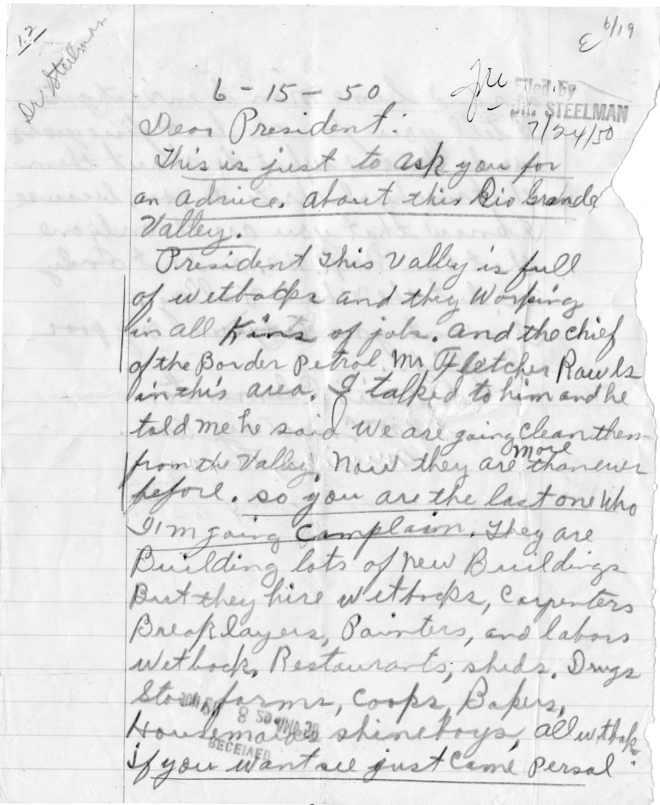 1.2
Dr Steelman
6/19
6-15-50
Filed by
DR. STEELMAN
7/24/50
Dear President:
This is just to ask you for
an advice. about this Rio Grande
Valley.
President this Valley is full
of wetbacks and they Working
in all Kins of jobs. and the chief
of the Border Petrol. Mr Fletcher Rawls
in this area. I talked to him and he
told me he said we are going clean them
from the Valley. Now they are more than ever
before. so you are the last one who
I'm going Complain. They are
Building lots of New Buildings
But they hire wetbacks, Carpenters
Breaklayers, Painters, and labors
wetback. Restaurants, sheds. Drugs
Sto farms, Coops, Bakers,
Housemaids shineboys, all wtbak.
RECEIVED
if you want see just Came Persal